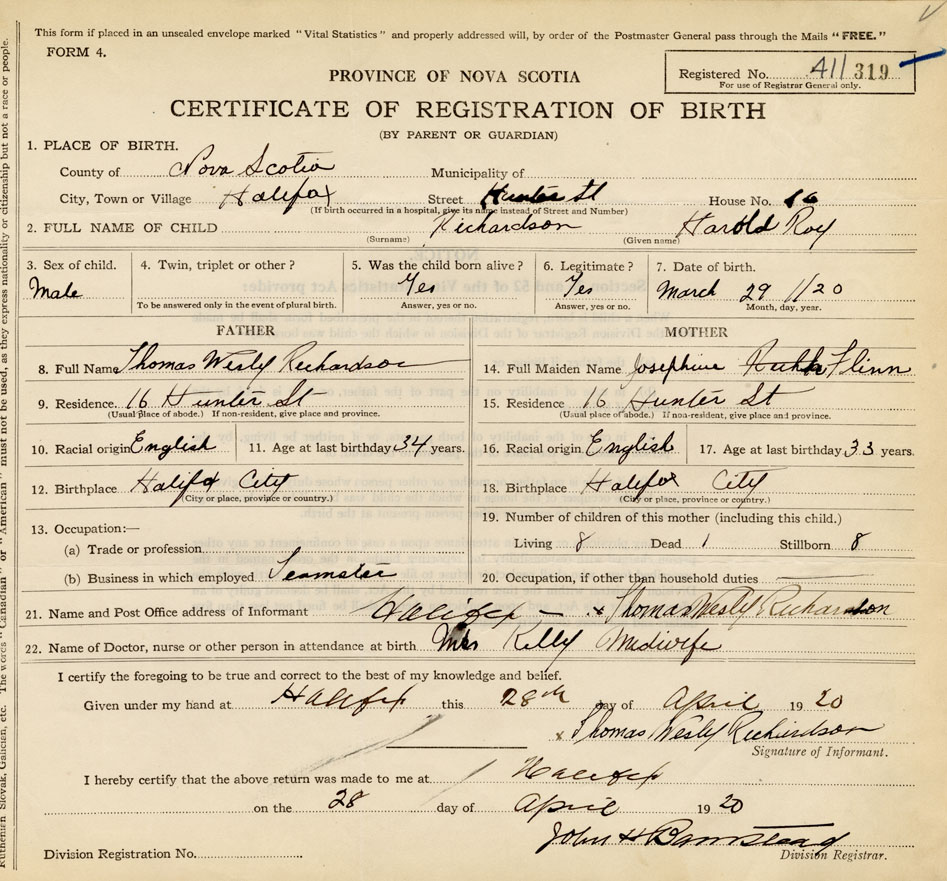 This form if placed in an unsealed envelope marked "Vital Statistics" and properly addressed will, by order of the Postmaster General pass through the Mails "FREE."
FORM 4.
Registered No. 411 319
For use of Registrar General only.
PROVINCE OF NOVA SCOTIA
CERTIFICATE OF REGISTRATION OF BIRTH
(BY PARENT OR GUARDIAN)
1. PLACE OF BIRTH.
County of Nova Scotia Municipality of
City, Town or Village Halifax Street Hunter St House No. 16
(If birth occurred in a hospital, give its name instead of Street and Number)
2. FULL NAME OF CHILD Richardson Harold Roy
(Surname) (Given name)
3. Sex of child. 4. Twin, triplet or other? 5. Was the child born alive? 6. Legitimate? 7. Date of birth.
Male Yes Yes March 29 1920
To be answered only in the event of plural birth. Answer, yes or no. Answer, yes or no. Month, day, year.
FATHER MOTHER
8. Full Name Thomas Wesly Richardson 14. Full Maiden Name Josephine Flinn
9. Residence 16 Hunter St 15. Residence 16 Hunter St
(Usual place of abode.) If non-resident, give place and province. (Usual place of abode.) If non-resident, give place and province.
10. Racial origin English 11. Age at last birthday 34 years. 16. Racial origin English 17. Age at last birthday 33 years.
12. Birthplace Halifax City 18. Birthplace Halifax City
(City or place, province or country.) (City or place, province or country.)
13. Occupation:— 19. Number of children of this mother (including this child.)
(a) Trade or profession Living 8 Dead 1 Stillborn 8
(b) Business in which employed Teamster 20. Occupation, if other than household duties
21. Name and Post Office address of Informant Halifax - x Thomas Wesly Richardson
22. Name of Doctor, nurse or other person in attendance at birth Mrs Kelly Midwife
I certify the foregoing to be true and correct to the best of my knowledge and belief.
Given under my hand at Halifax this 28th day of April 1920
x Thomas Wesly Richardson
Signature of Informant.
I hereby certify that the above return was made to me at Halifax
on the 28 day of April 1920
John H Barnstead
Division Registrar.
Division Registration No.
Ruthenian Slovak, Galician, etc. The words "Canadian" or "American" must not be used, as they express nationality or citizenship but not a race or people.